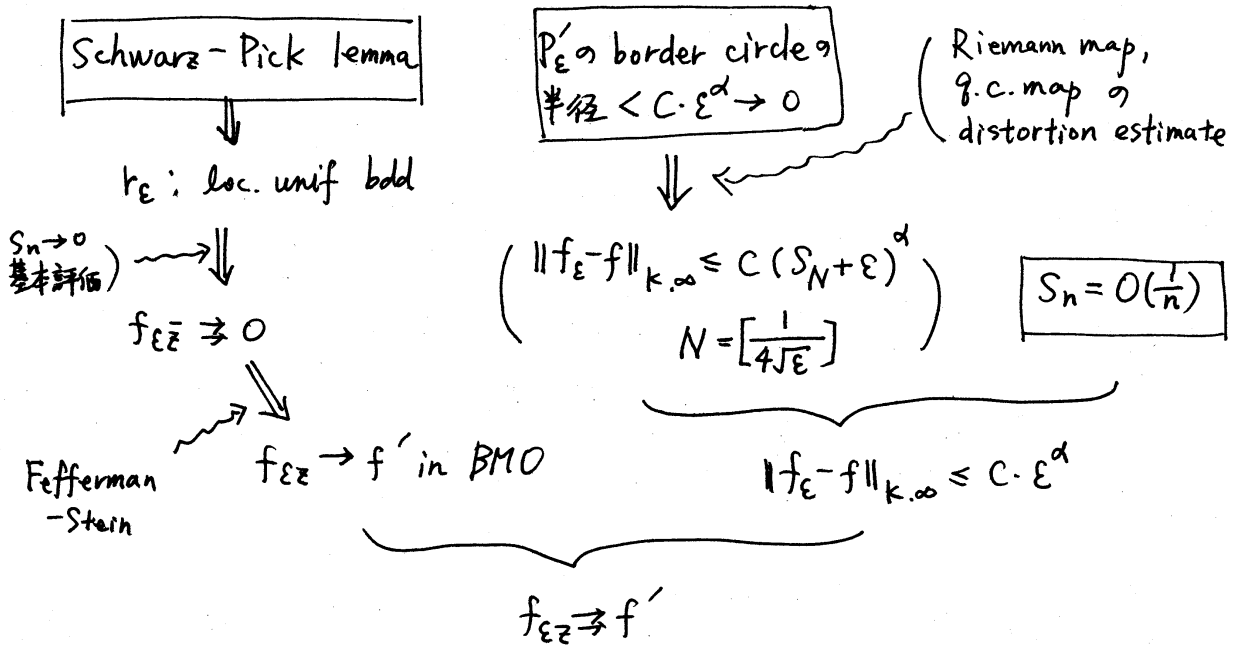 Schwarz-Pick lemma
⇓
r_ε : loc. unif bdd
S_n→0
基本評価)
⇓
f_{ε z̄} ⇉ 0
Fefferman
-Stein
f_{εz} → f′ in BMO
P′_ε の border circle の
半径 < C·ε^α → 0
( Riemann map,
q.c. map の
distortion estimate
⇓
( ‖f_ε-f‖_{K.∞} ≤ C (S_N+ε)^α )
N = [1/(4√ε)]
S_n = O(1/n)
‖f_ε-f‖_{K.∞} ≤ C·ε^α
f_{εz} ⇉ f′